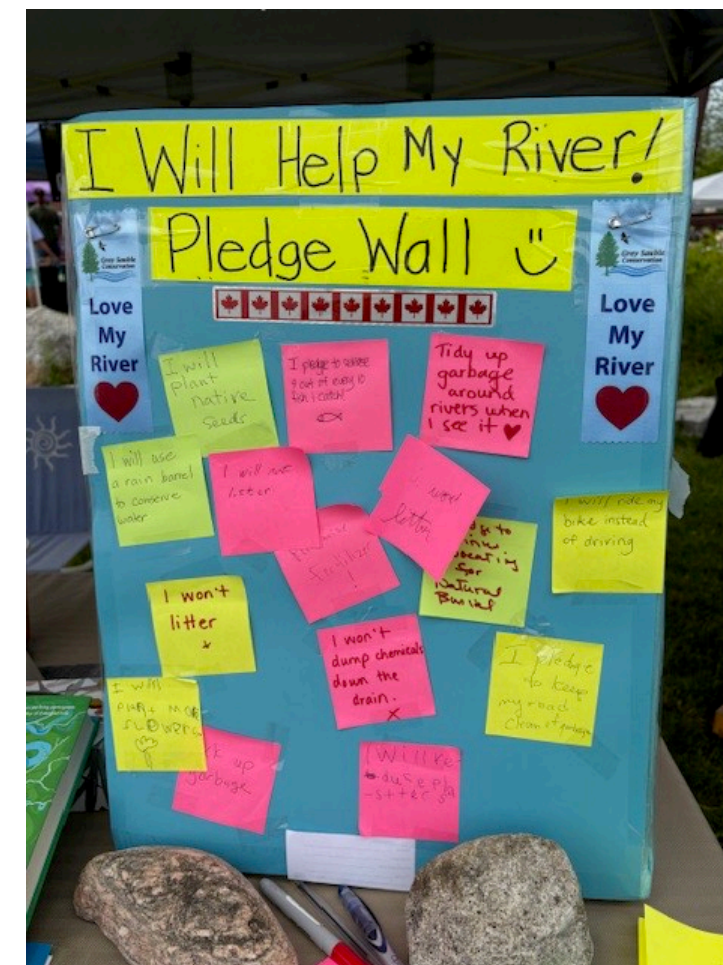 I Will Help My River!
Pledge Wall
Grey Sauble
Conservation
Love
My
River
Grey Sauble
Conservation
Love
My
River
I will
plant
native
seeds
I pledge to release
9 out of every 10
fish I catch!
Tidy up
garbage
around
rivers when
I see it
I will use
a rain barrel
to conserve
water
I will not
litter
litter
fertilizer
!
to
for
Natural
Burial
I will ride my
bike instead
of driving
I won't
litter
I won't
dump chemicals
down the
drain.
I pledge
to keep
my road
clean of garbage
I will
plant more
flowers
up
garbage
I Will Re